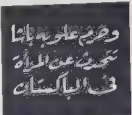 وحرم علوبه باشا
تتحدث عن المرأة
في الباكستان